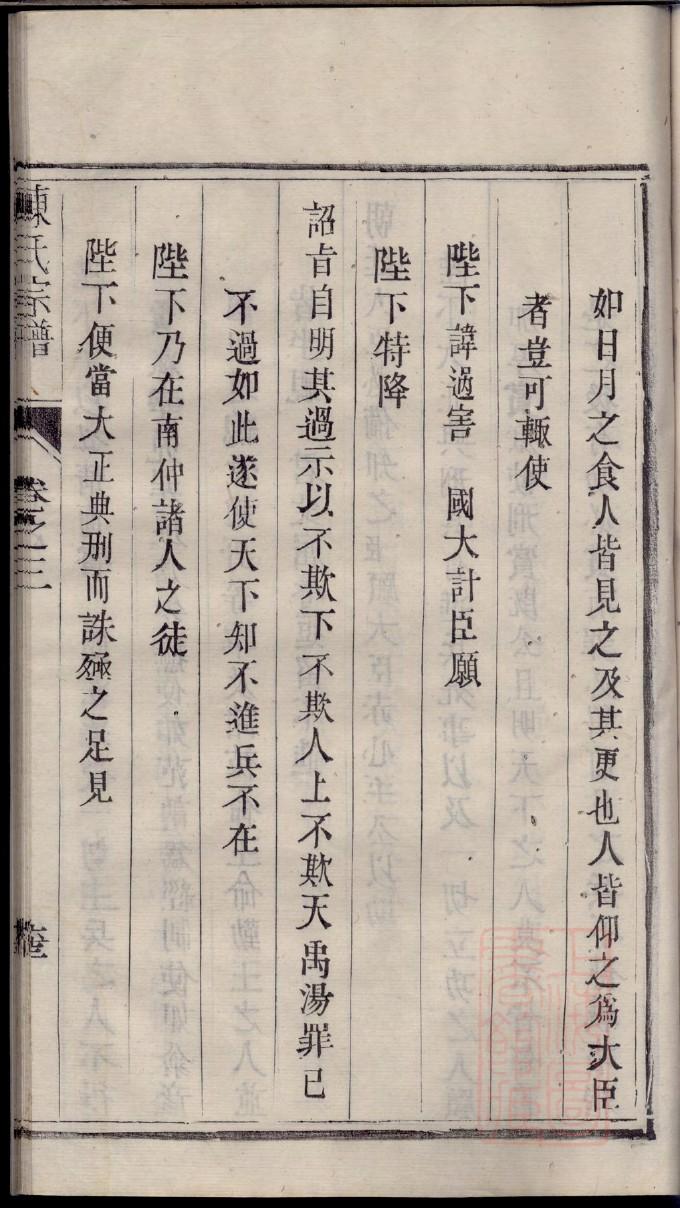 如日月之食人皆見之及其更也人皆仰之為大臣
者豈可輙使
陛下諱過害　國大計臣願
陛下特降
詔旨自明其過示以不欺下不欺人上不欺天禹湯罪已
不過如此遂使天下知不進兵不在
陛下乃在南仲諸人之徒
陛下便當大正典刑而誅殛之足見
陳氏宗譜
卷之三